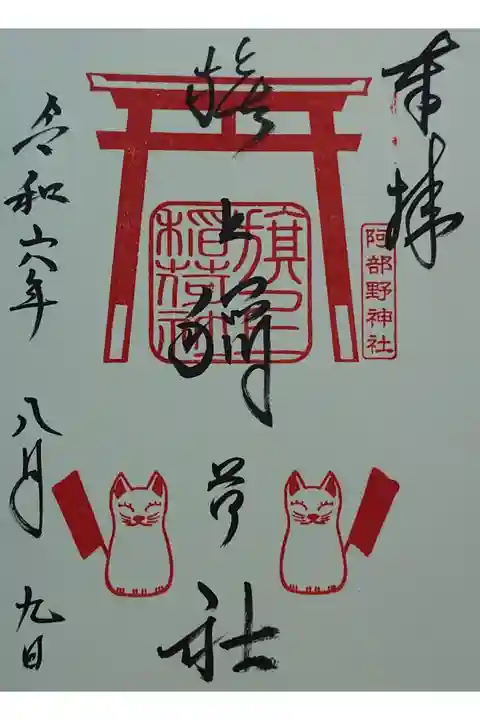 奉拝
阿部野神社
旗上稲荷社
旗上
稲荷社
令和六年 八月 九日